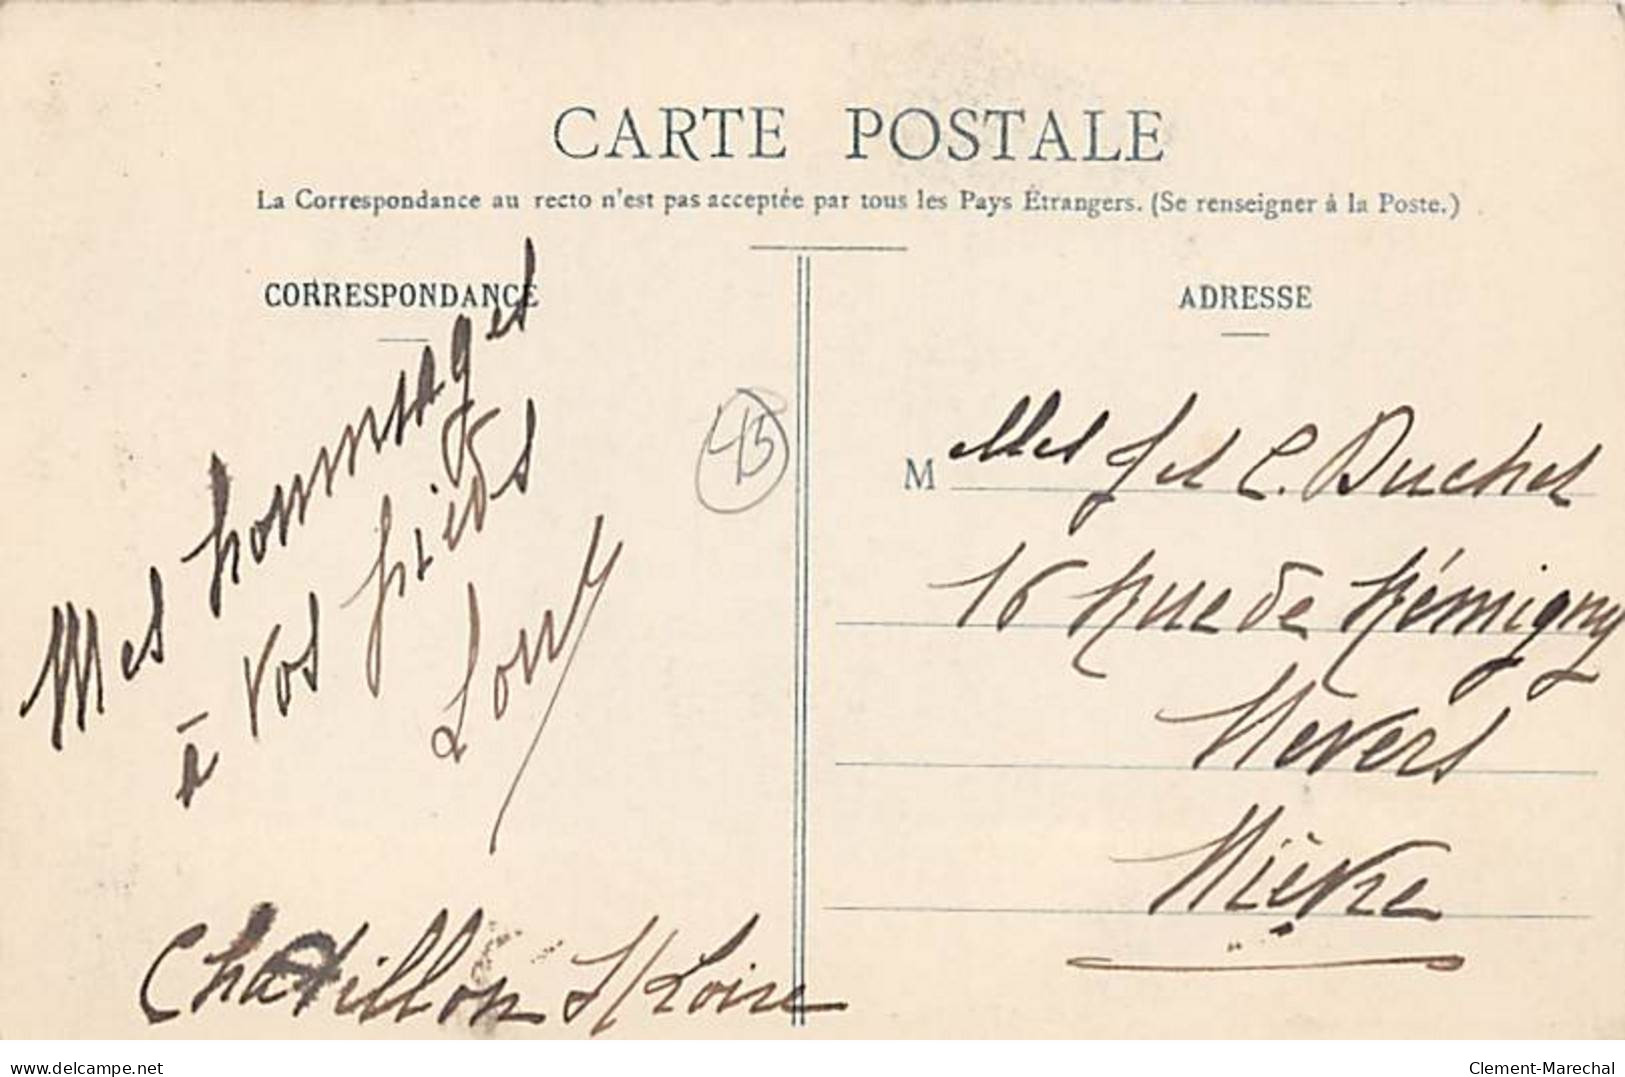 CARTE POSTALE
La Correspondance au recto n'est pas acceptée par tous les Pays Étrangers. (Se renseigner à la Poste.)
CORRESPONDANCE
Mes hommages
à vos pieds
Chatillon s/Loire
45
ADRESSE
Melles C. Duchet
16 Rue de Rémigny
Nevers
Nièvre
delcampe.net
Clement-Marechal